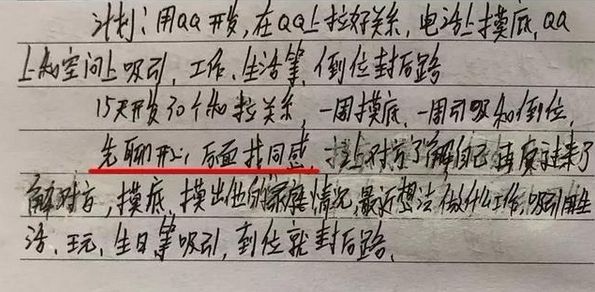 计划：用QQ开发，在QQ上拉好关系，电话上摸底，QQ
上和空间上吸引，工作、生活等，到位封后路
15天开发30个和拉关系，一周摸底，一周引吸和到位，
先聊开心后面找同感，找上对方了解自己再度过来了
解对方，摸底，摸出他的家庭情况，最近想法做什么工作，吸引用生
活、玩、生日等吸引，到位就封后路，